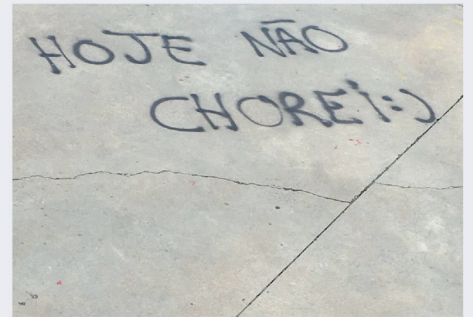 HOJE NÃO
CHOREI:)